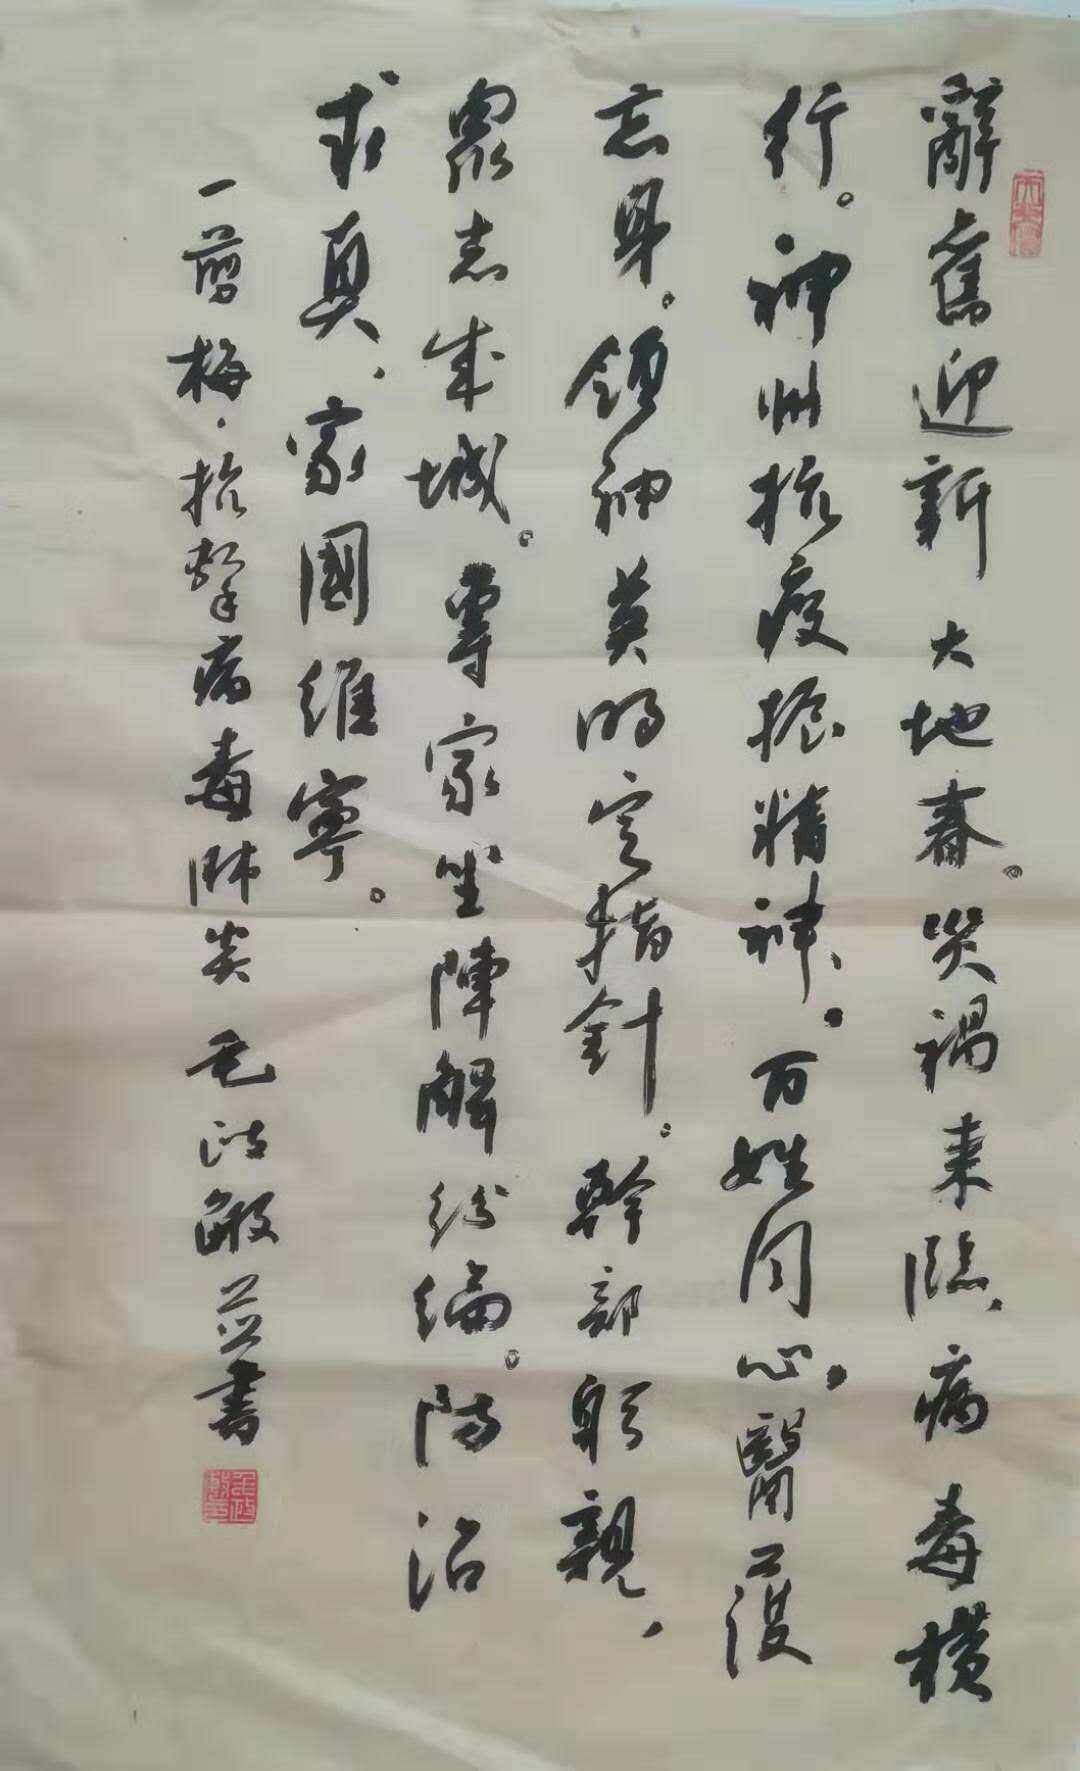 辭舊迎新大地春。災禍来臨、病毒横
行。神州抗疫振精神。百姓同心。醫護
忘身。領袖英明定指針。幹部躬親、
眾志成城。專家坐陣解紛綸。防治
求真、家國維寧。
一剪梅·抗擊病毒肺炎 毛治敏並書